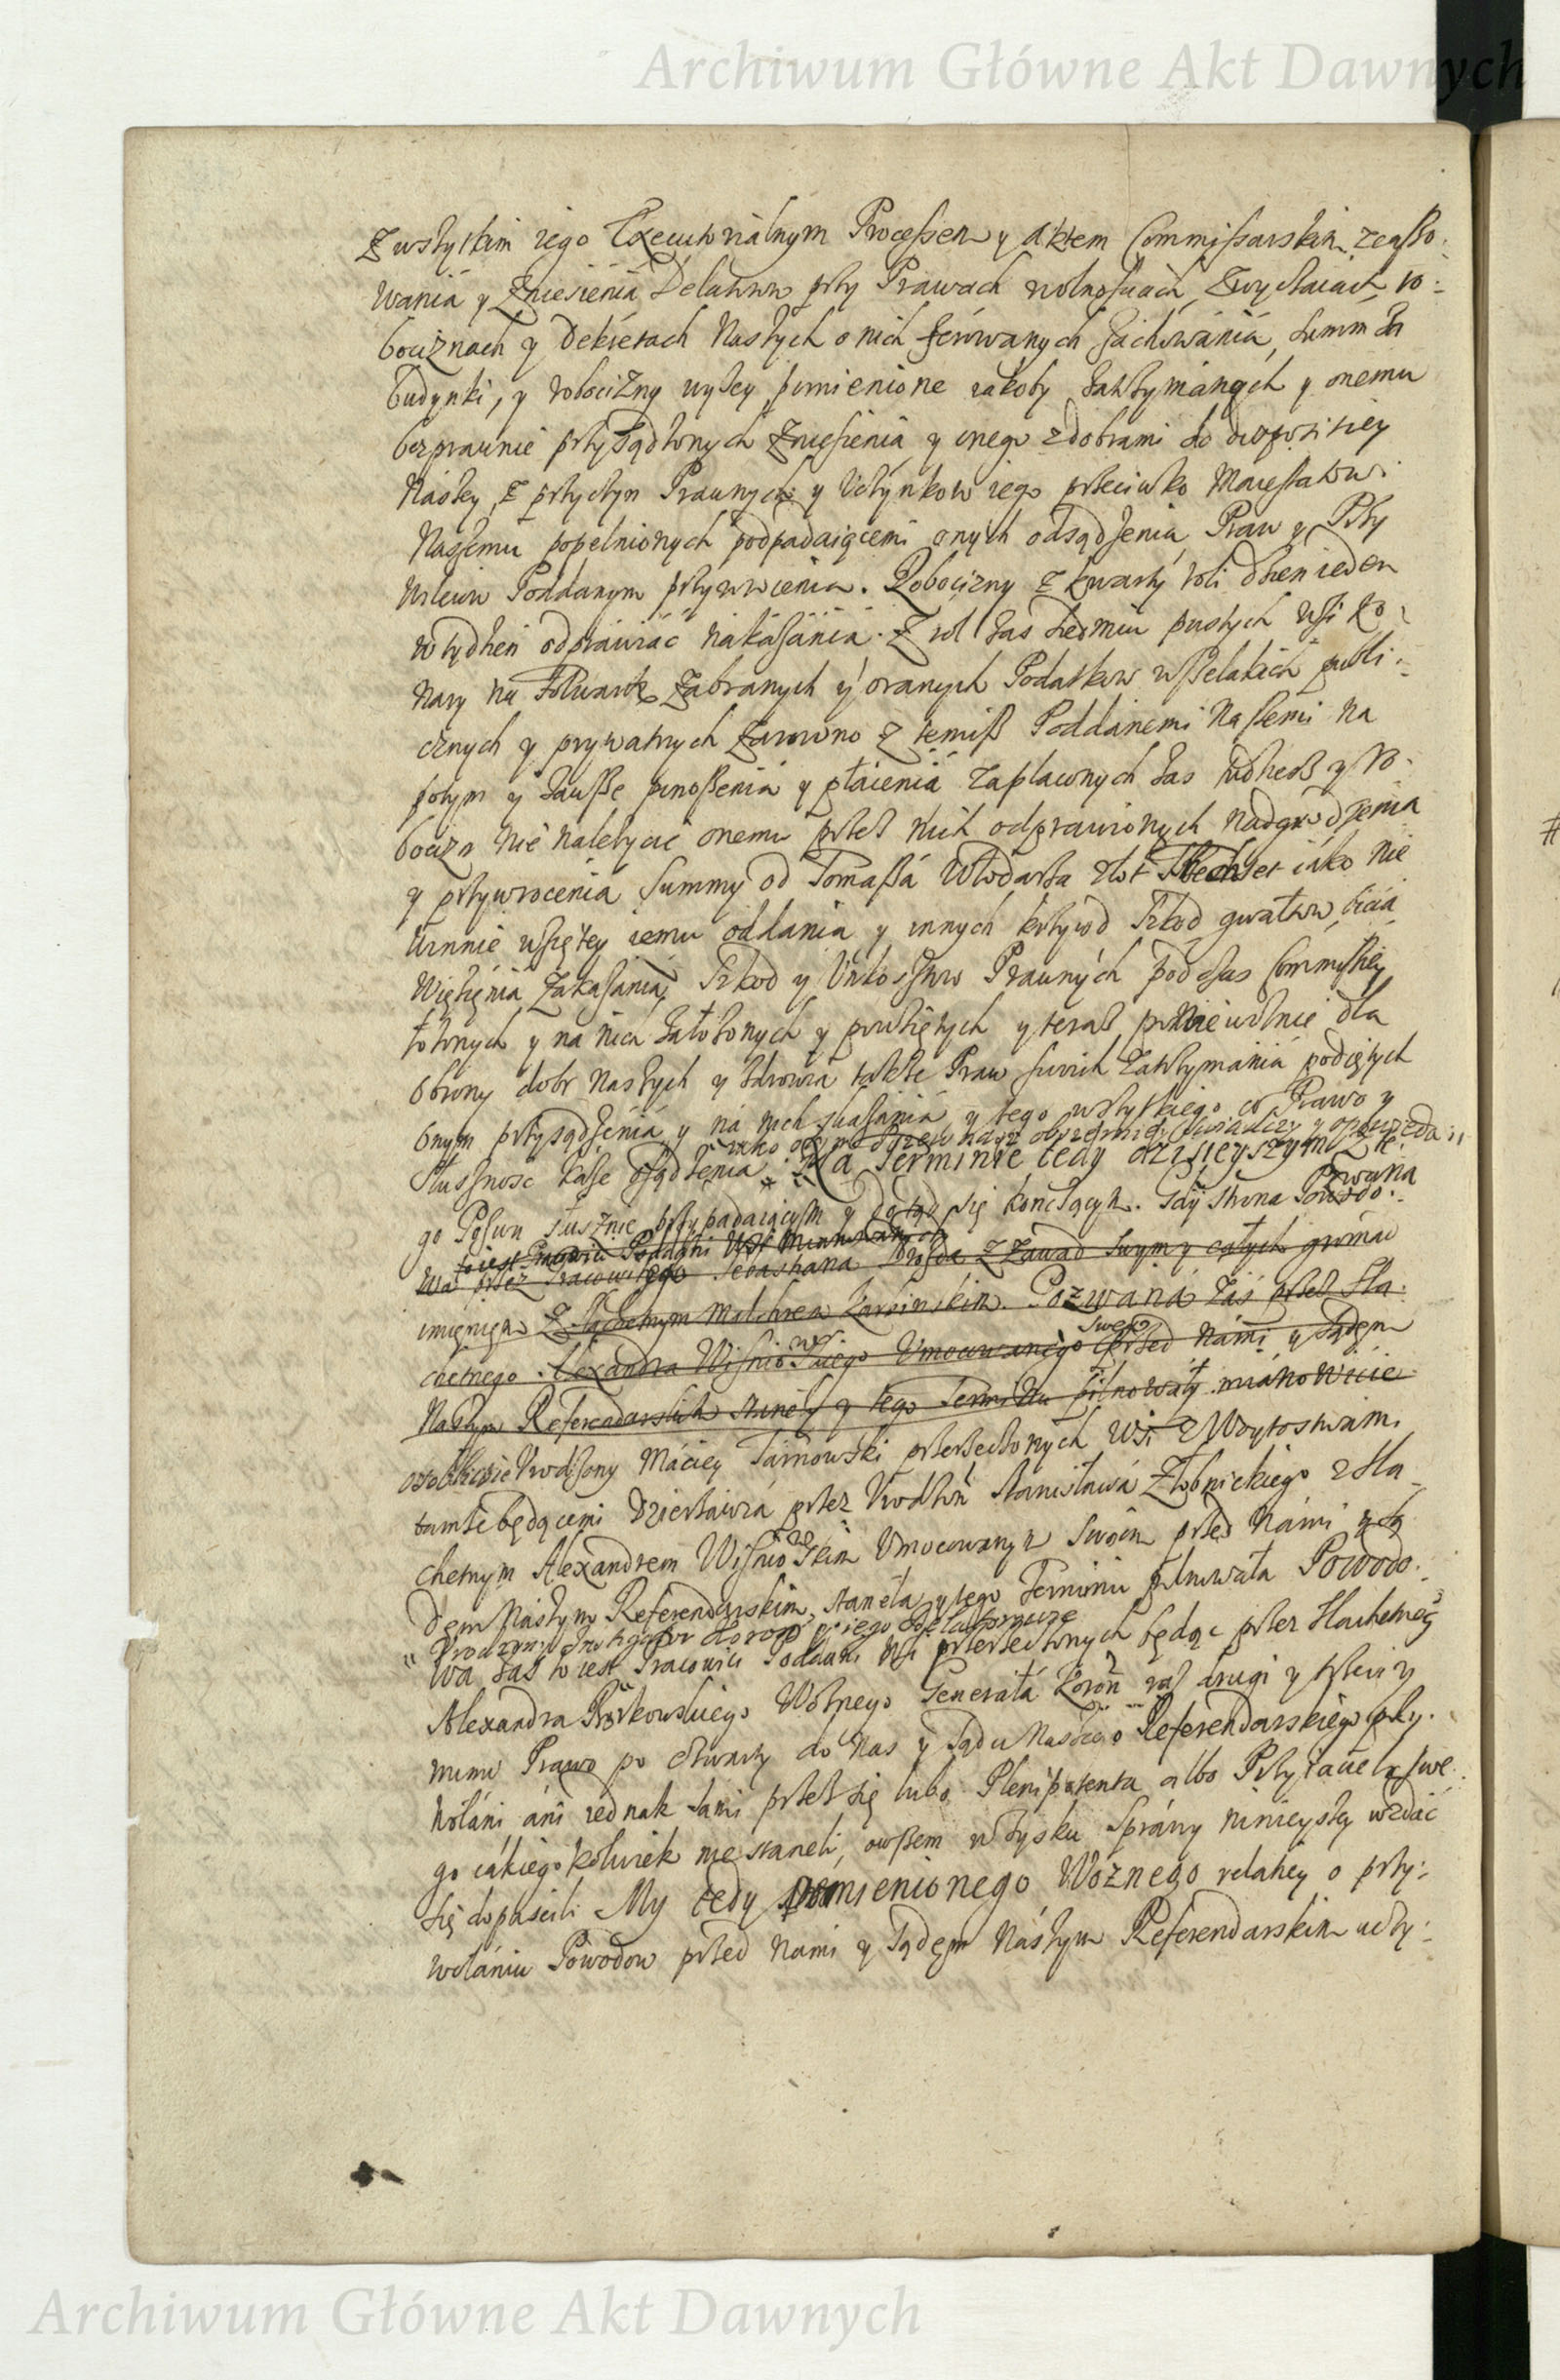 Archiwum Główne Akt Dawnych
Z wszytkim iego Executorialnym Processem y aktem Commissarskim zcasso-
wania y Zniesienia Delatorow przy Prawach wolnosciach Zwyczaiach ro-
bociznach y Dekretach Naszych o nich ferowanych Zachowania, Summ za
budynki, y robocizny wyzey pomienione iakoby zatrzymanych y onemu
bezprawnie przysądzonych Zniesienia y onego z dobrami do dispositiey
Naszey, z przyczyn Prawnych y Uczynkow iego przeciwko Maiestatowi
Naszemu popelnionych podpadaiącemi onych odsądzenia Praw y
Poddanym przywrocenia. Robocizny z kwarty roli dzien ieden
w tydzien odprawiać nakazania. Z rol zas siedmiu pustych
na Folwark Zabranych y oranych Podatkow wszelakich publi-
cznych y prywatnych zarowno z temisz Poddanemi Naszemi na
potym y zawsze ponoszenia y płacenia Zaplaconych zas y ro-
bocizn nie nalezycie onemu przez nich odprawionych nadgrodzenia
y przywrocenia Summy od Tomasza Włodarza złot iako nie
winnie wziętey iemu oddania y innych krzywd Szkod gwałtow bicia
Więzienia Zakazania, Szkod y Prawnych podczas Commissiey
łożonych y na nich załozonych y y teraz poniewolnie dla
obrony dobr Naszych y zdrowia także Praw swoich Zatrzymania podiętych
onym przysądzenia y na nich skazania y tego wszytkiego co Prawo y
iako o tym Pozew nasz obszerniey swiadczy y opowieda
Słusznosc każe osądzenia. Na Terminie tedy dzisieyszym Z te-
go Pozwu słusznie przypadaiącym y dotąd się konczącym. Gdy strona Powodo-
Pozwana
to iest Pracowici Poddani Wsi
wa przez Pracowitego Sebastiana z Zawad swym y całych gromad
imięniem Z Szlachetnym Melchiorem. Pozwana Zaś przez Szla-
chetnego Alexandra Wisniowskiego Umocowanego Swego przed Nami y Sądem
Naszym Referendarskim stanęły y tego Terminu pilnowały mianowicie
Urodzony Maciey Tarnowski przerzeczonych Wsi z Woytostwami
tamże będącemi Dzierżawca przez Urodzon Stanisława Złobnickiego z Szla-
chetnym Alexandrem Wisniowskim Umocowanym Swoim przed Nami y Są-
dem Naszym Referendarskim stanęła y tego Terminu pilnowała Powodo-
Urodzony Instigator Koronny y iego Delatorowie
wa zas to iest Pracowici Poddani Wsi przerzeczonych będąc przez Szlachetneg
Alexandra Woznego Generała Koron raz drugi y trzeci y
mimo Prawo po czwarty do Nas y Sądu Naszego Referendarskiego przy-
wołani ani iednak sami przez się lubo Plenipotenta albo Przyiaciela swe-
go iakiegokolwiek nie staneli, owszem w zysku Sprawy ninieyszey wzdać
się dopuscili My tedy pomienionego Woznego relatiey o przy-
wołaniu Powodow przed Nami y Sądem Naszym Referendarskim uczy-
Archiwum Główne Akt Dawnych